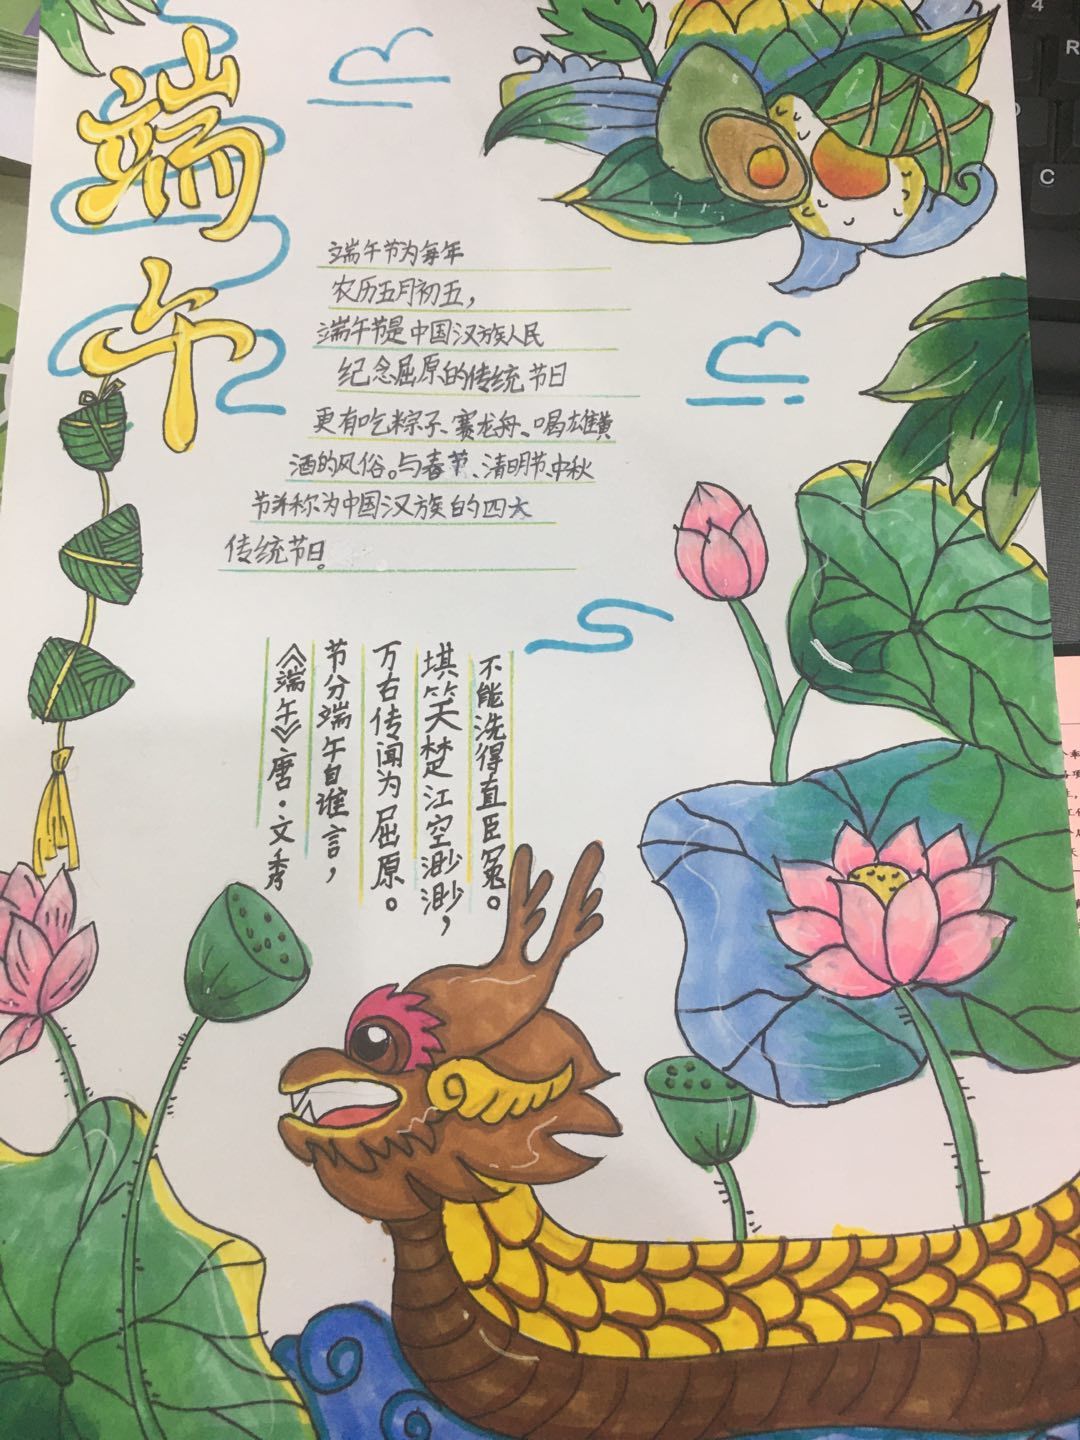 端午
端午节为每年
农历五月初五，
端午节是中国汉族人民
纪念屈原的传统节日
更有吃粽子、赛龙舟、喝雄黄
酒的风俗。与春节、清明节、中秋
节并称为中国汉族的四大
传统节日。
《端午》唐·文秀
节分端午自谁言，
万古传闻为屈原。
堪笑楚江空渺渺，
不能洗得直臣冤。
4
R
C